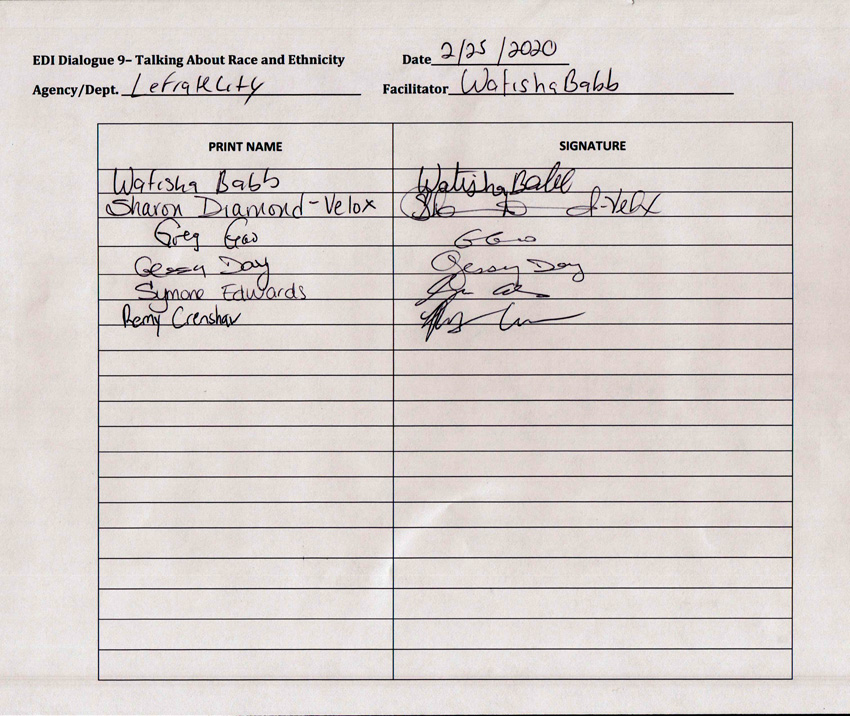 EDI Dialogue 9– Talking About Race and Ethnicity Date 2/25/2020
Agency/Dept. Lefrak City Facilitator Watisha Babb
PRINT NAME SIGNATURE
Watisha Babb Watisha Babb
Sharon Diamond-Velox D-Velox
Greg Gao GGao
Gessy Day Gessy Day
Symone Edwards
Remy Crenshaw